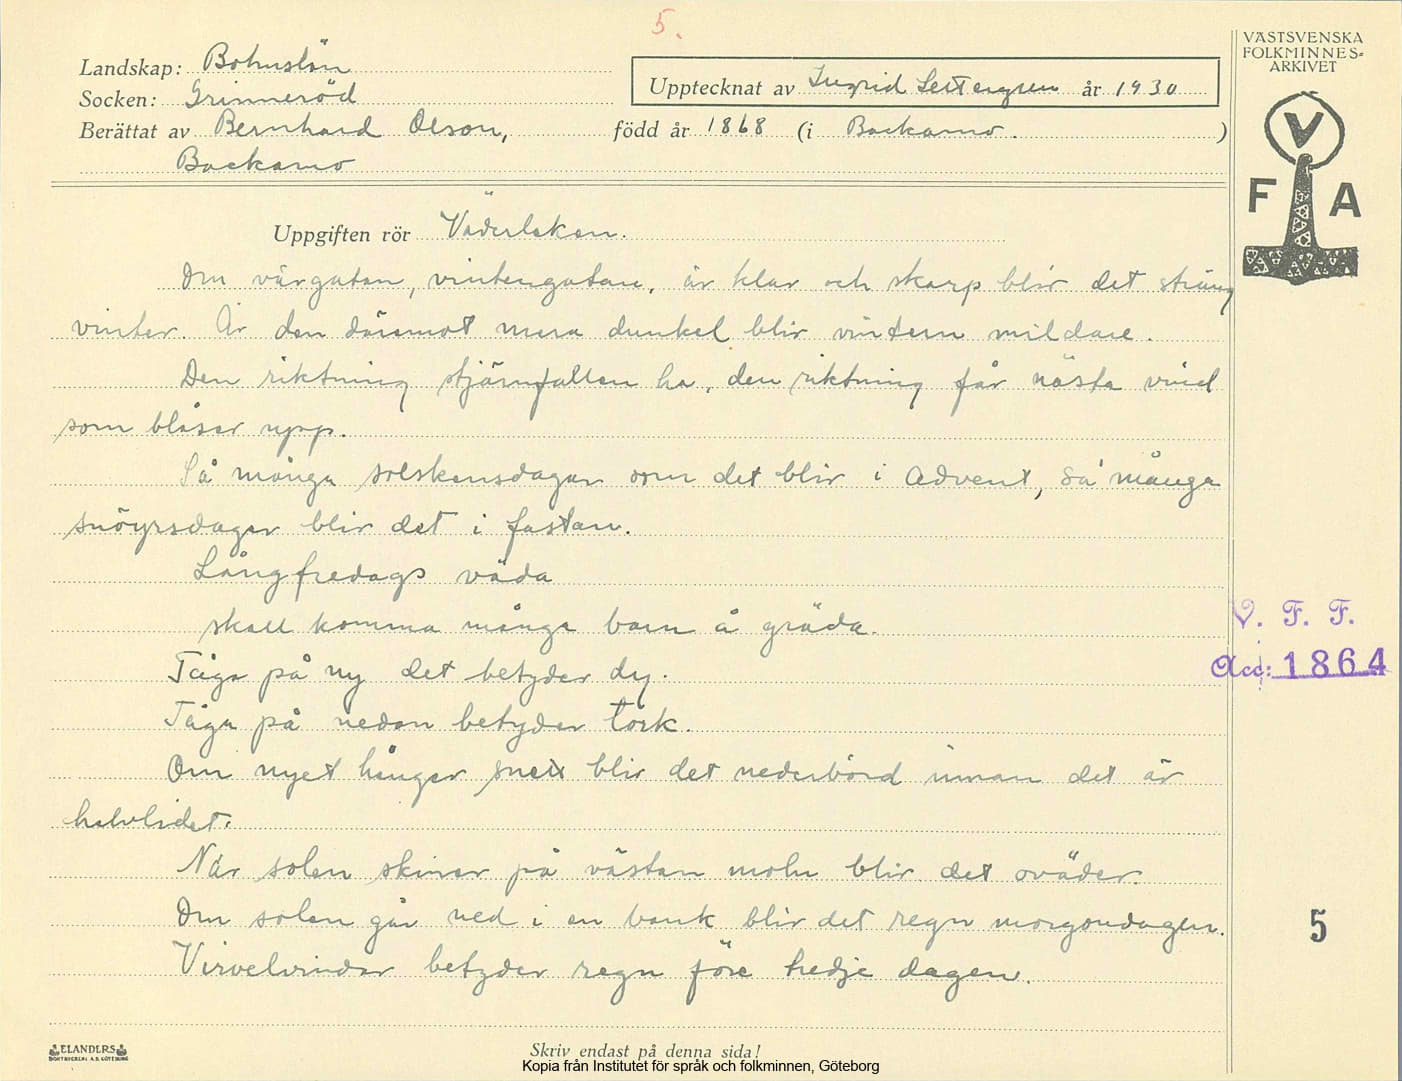 5.
VÄSTSVENSKA
FOLKMINNES-
ARKIVET
Landskap: Bohuslän
Socken: Grinneröd
Upptecknat av Ingrid år 1930
Berättat av Bernhard Olson, född år 1868 (i Backamo. )
Backamo
V
F A
Uppgiften rör Väderleken.
Om vårgatan, vintergatan, är klar och skarp blir det sträng
vinter. Är den däremot mera dunkel blir vintern mildare.
Den riktning stjärnfallen ha, den riktning får nästa vind
som blåser upp.
Så många solskensdagar som det blir i Advent, så många
snöyrsdagar blir det i fastan.
Långfredags väda
skall komma många barn å gräda.
Tåga på ny det betyder dy.
Tåga på nedan betyder tork.
Om nyet hänger snett blir det nederbörd innan det är
halvlidet.
När solen skiner på västan moln blir det oväder.
Om solen går ned i en bank blir det regn morgondagen.
Virvelvindar betyder regn före tredje dagen.
V. F. F.
Acc: 1864
5
ELANDERS
BOKTRYCKERI A.B. GÖTEBORG
Skriv endast på denna sida!
Kopia från Institutet för språk och folkminnen, Göteborg